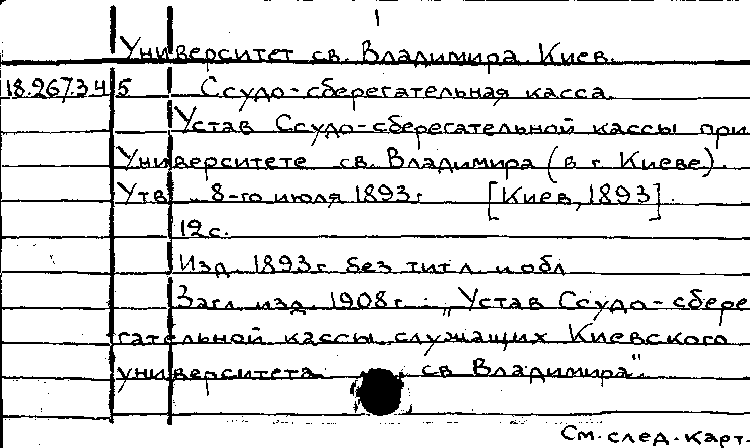 1
Университет св. Владимира. Киев.
18.267.34 5 Ссудо-сберегательная касса.
Устав Ссудо-сберегательной кассы при
Университете св. Владимира (в г. Киеве).
Утв. 8-го июля 1893 г. [Киев, 1893].
12 с.
Изд. 1893 г. без тит. л. и обл.
Загл. изд. 1908 г.: "Устав Ссудо-сбере
гательной кассы служащих Киевского
университета св. Владимира".
См. след. карт.